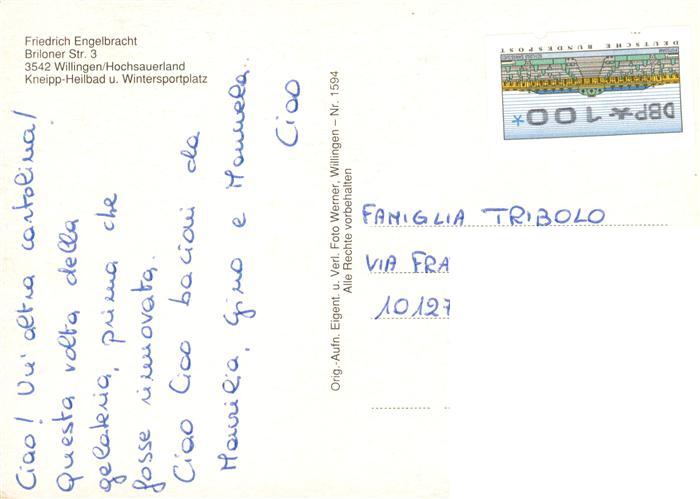 Friedrich Engelbracht
Briloner Str. 3
3542 Willingen/Hochsauerland
Kneipp-Heilbad u. Wintersportplatz
Ciao! Un' altra cartolina!
Questa volta della
gelateria, prima che
fosse rinnovata.
Ciao Ciao bacioni da
Maurilia, Gino e Manuela.
Ciao
Orig.-Aufn. Eigent. u. Verl. Foto Werner, Willingen – Nr. 1594
Alle Rechte vorbehalten
DEUTSCHE BUNDESPOST
DBP*100*
FAMIGLIA TRIBOLO
VIA FRA
10127